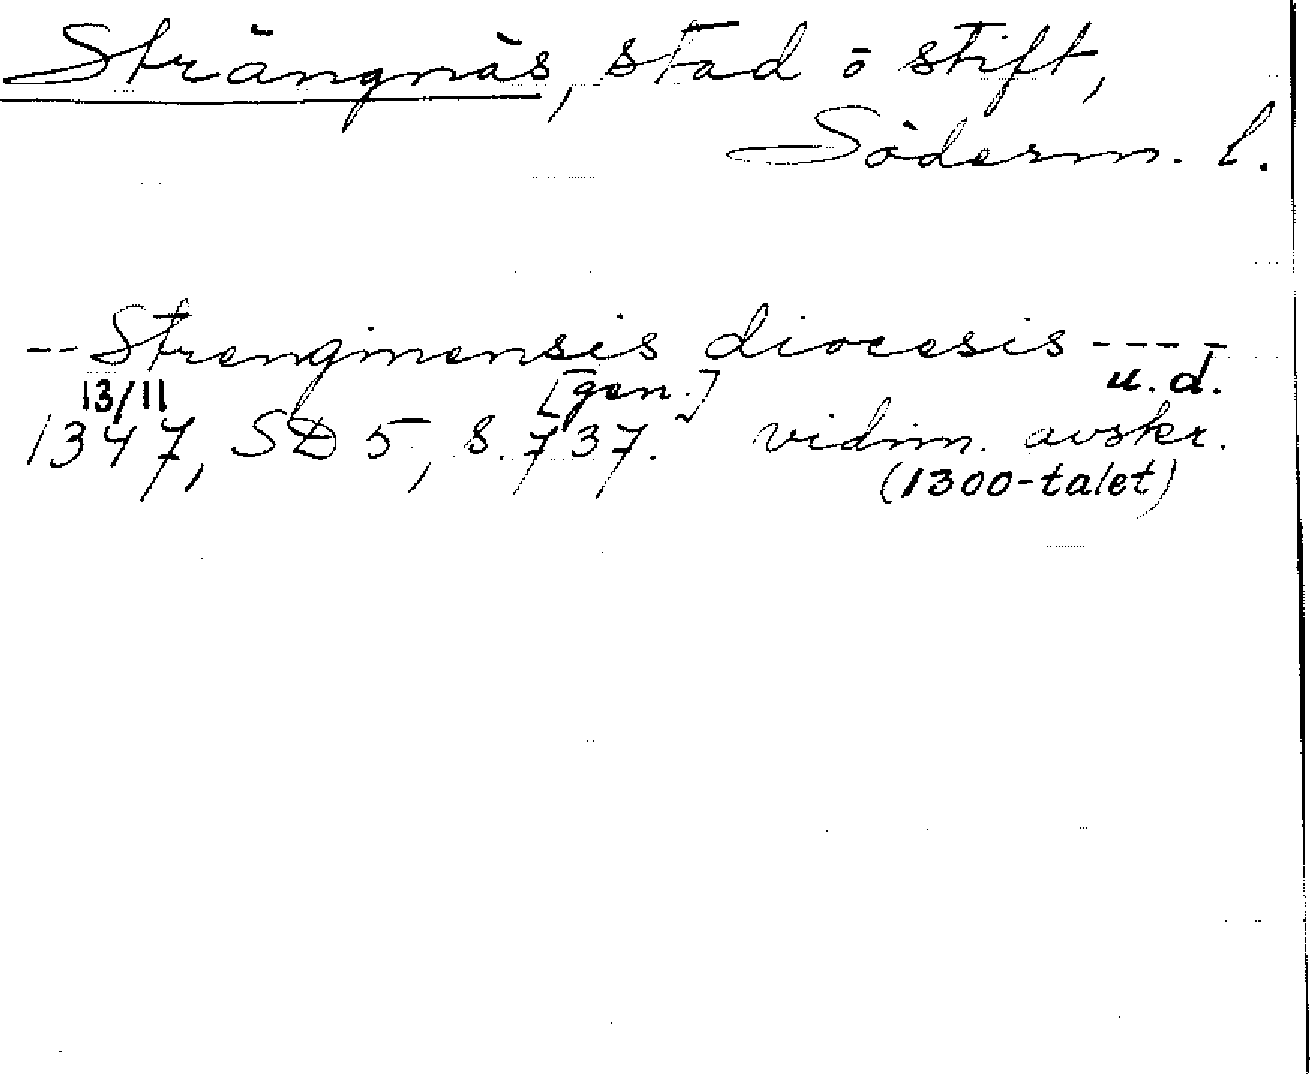 Strängnäs, stad o stift,
Söderm. l.
-- Strenginensis diocesis ----
13/11 [gen.] u. d.
1347, SD 5, s. 737. vidim. avskr.
(1300-talet)